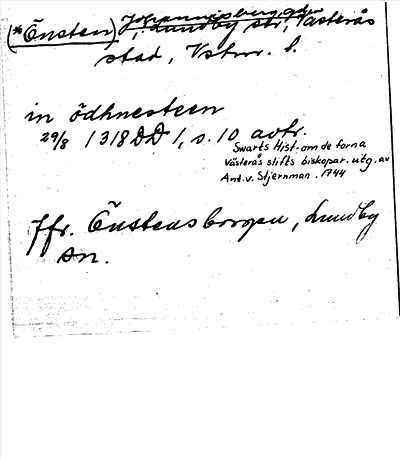 (*Önsten) Johannisberg
, Lundby str, Västerås
stad, Vstm. l.
in ödhnesteen
29/8 1318 DD 1, s. 10 avtr.
Swarts Hist. om de forna
Västerås stifts biskopar. utg. av
Ant. v. Stjernman. 1744
Jfr. Önstensborgen, Lundby
sn.